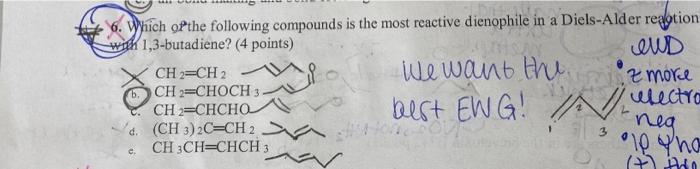 6. Which of the following compounds is the most reactive dienophile in a Diels-Alder reaction
with 1,3-butadiene? (4 points)
EWD
CH2=CH2
b. CH2=CHOCH3
c. CH2=CHCHO
d. (CH3)2C=CH2
e. CH3CH=CHCH3
we want the
best EWG!
2 more
electro
neg
1
2
3
(+)